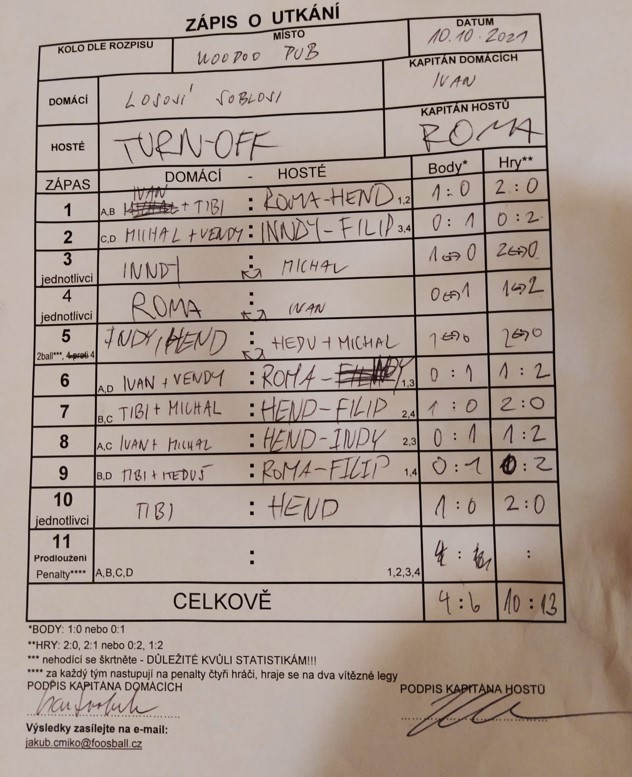 ZÁPIS O UTKÁNÍ
KOLO DLE ROZPISU MÍSTO DATUM
WOODOO PUB 10.10.2021
DOMÁCÍ LOSOSÍ SOBLOSI KAPITÁN DOMÁCÍCH
IVAN
HOSTÉ TURN-OFF KAPITÁN HOSTŮ
ROMA
ZÁPAS DOMÁCÍ - HOSTÉ Body* Hry**
1 A,B IVAN + TIBI : ROMA-HEND 1,2 1:0 2:0
2 C,D MICHAL + VENDY : INNDY-FILIP 3,4 0:1 0:2
3 jednotlivci INNDY : MICHAL 1⇔0 2⇔0
4 jednotlivci ROMA : IVAN 0⇔1 1⇔2
5 2ball***, 4 proti 4 INDY, HEND : HEDU + MICHAL 1⇔0 2⇔0
6 A,D IVAN + VENDY : ROMA- 1,3 0:1 1:2
7 B,C TIBI + MICHAL : HEND-FILIP 2,4 1:0 2:0
8 A,C IVAN + MICHAL : HEND-INDY 2,3 0:1 1:2
9 B,D TIBI + HEDUŠ : ROMA-FILIP 1,4 0:1 0:2
10 jednotlivci TIBI : HEND 1:0 2:0
11 Prodloužení
Penalty**** A,B,C,D : 1,2,3,4 : :
CELKOVĚ 4:6 10:13
*BODY: 1:0 nebo 0:1
**HRY: 2:0, 2:1 nebo 0:2, 1:2
*** nehodící se škrtněte - DŮLEŽITÉ KVŮLI STATISTIKÁM!!!
**** za každý tým nastupují na penalty čtyři hráči, hraje se na dva vítězné legy
PODPIS KAPITÁNA DOMÁCÍCH PODPIS KAPITÁNA HOSTŮ
Výsledky zasílejte na e-mail:
jakub.cmiko@foosball.cz